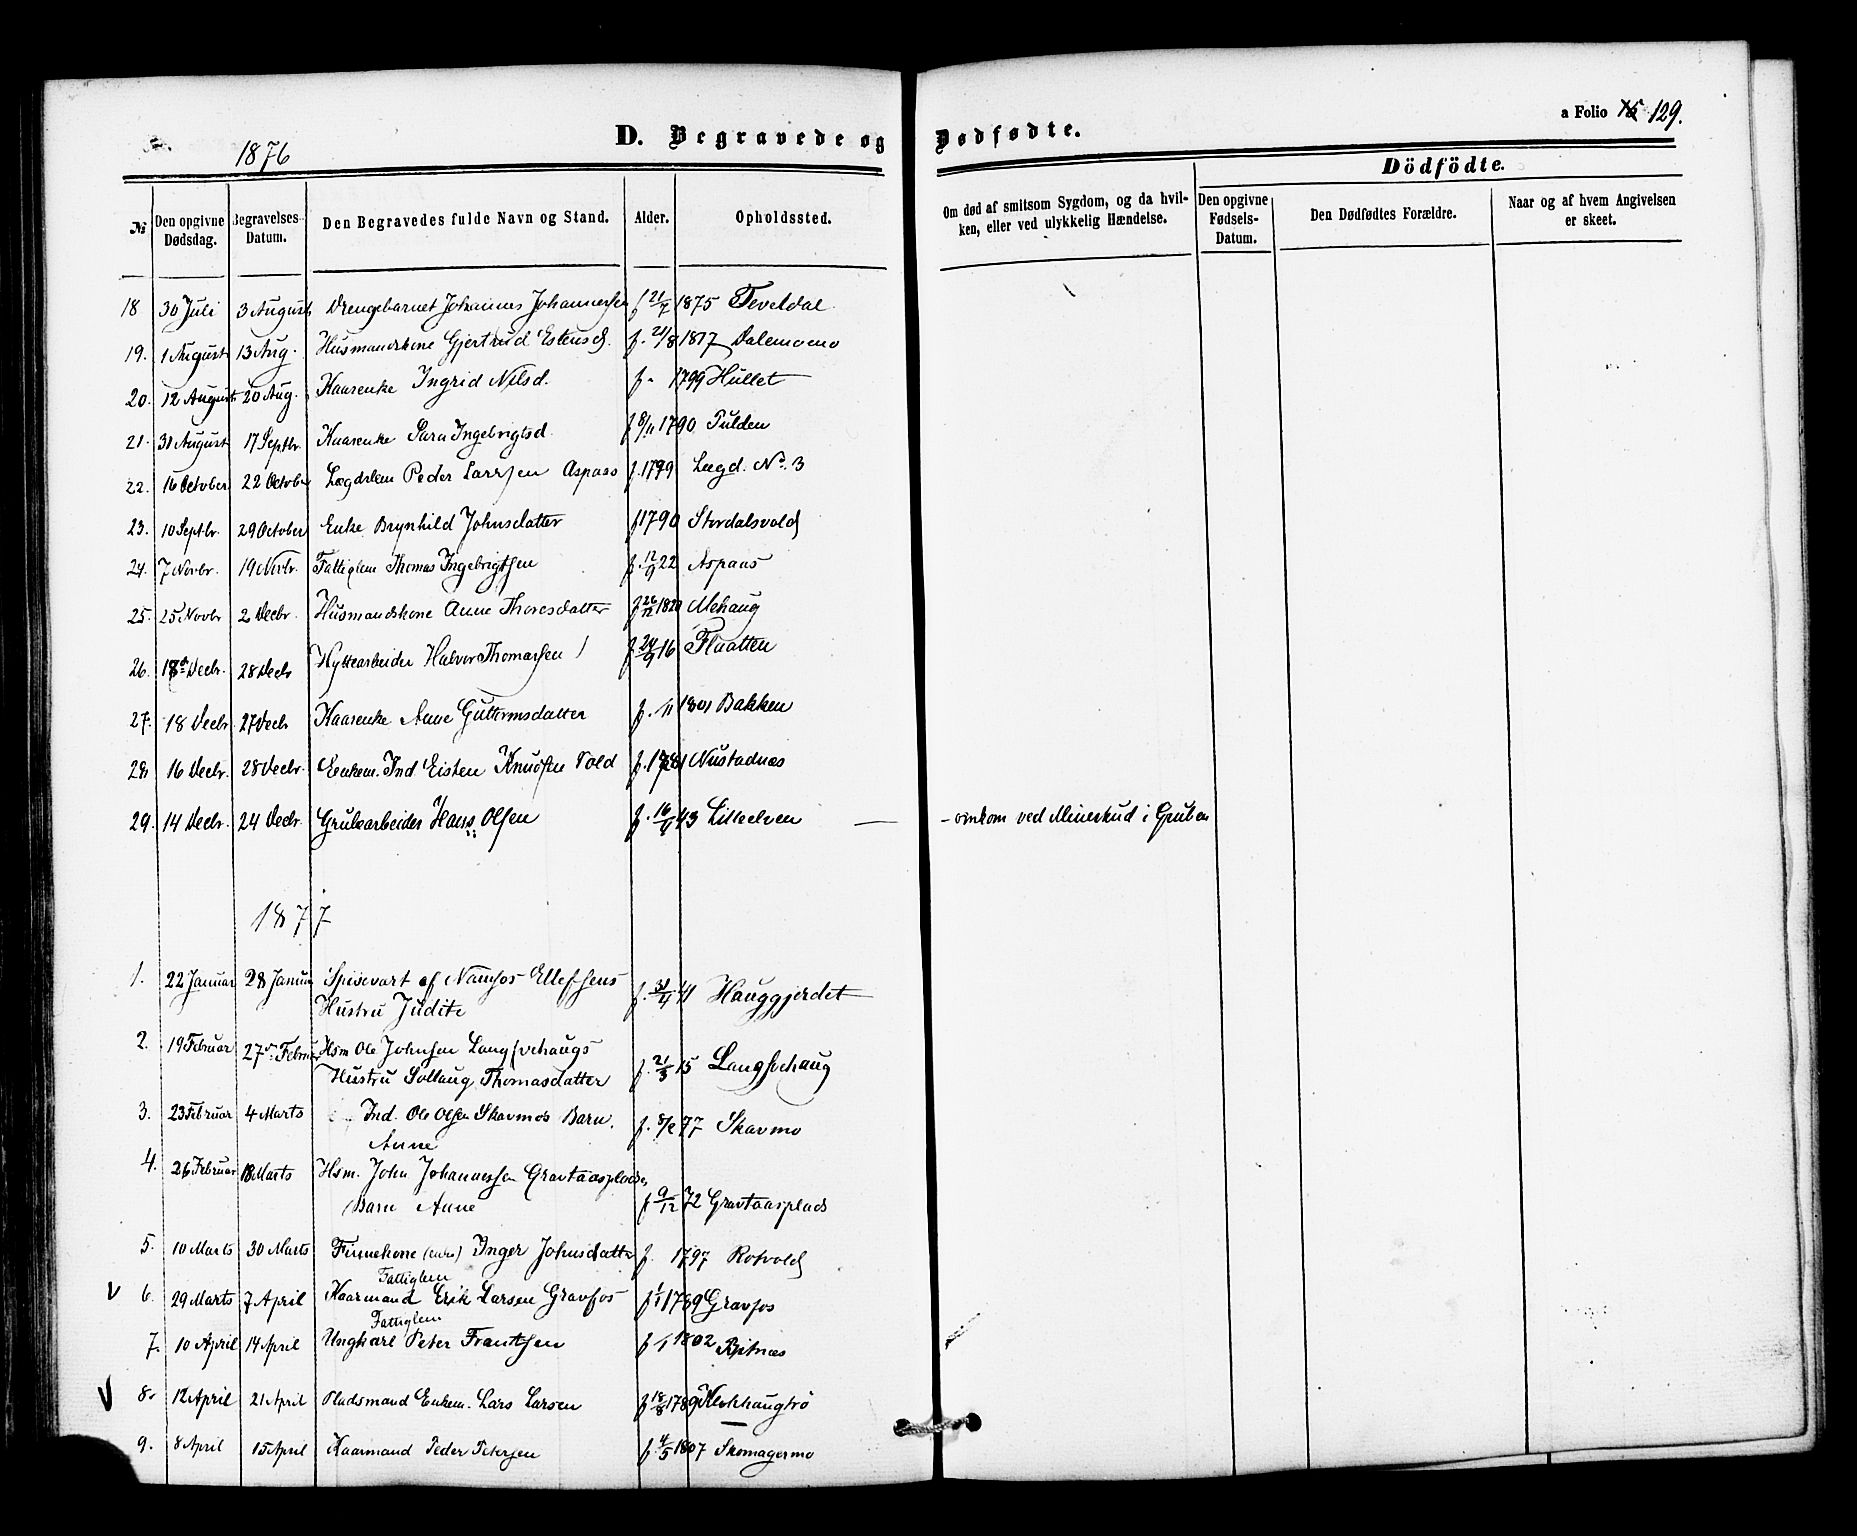 a Folio 129.
1876
D. Begravede og Dødfødte.
Dödfödte.
№
Den opgivne Dødsdag.
Begravelses-Datum.
Den Begravedes fulde Navn og Stand.
Alder.
Opholdssted.
Om død af smitsom Sygdom, og da hvil-
ken, eller ved ulykkelig Hændelse.
Den opgivne Fødsels-Datum.
Den Dødfødtes Forældre.
Naar og af hvem Angivelsen
er skeet.
18 30 Juli 3 August Drengebarnet Johannes Johannessen f 21/7 1875 Teveldal
19. 1 August 13 Aug. Husmandskone Gjertrud Estensd. f. 21/8 1817 Dalemomo
20. 12 August 20 Aug. Kaarenke Ingrid Nilsd. f. 1799 Hullet
21. 31 August 17 Septbr. Kaarenke Sara Ingebrigtsd. f 8/11 1790 Pulden
22. 16 October 22 October Lægdslem Peder Larssen Aspaas f. 1799 Lægd. No. 3
23. 10 Septbr. 29 October Enke Brynhild Johnsdatter f 1790 Stordalsvold
24. 7 Novbr. 19 Novbr. Fattiglem Thomas Ingebrigtsen f. 12/9 22 Aspaas
25. 25 Novbr 2 Decbr. Husmandskone Anne Thoresdatter f 26/12 1820 Mehaug
26. Decbr. 28 Decbr Hyttearbeider Halvor Thomassen f 24/9 16 Flaatten
27. 18 Decbr 27 Decbr Kaarenke Anne Guttormsdatter f. /11 1801 Bakken
28 16 Decbr. 28 Decbr. Enkem. Ind. Eisten Knudsen Vold f. Nustadnæs
29. 14 Decbr. 24 Decbr. Grubearbeider Hans Olsen f. 16/9 43 Lilleelven — - omkom ved Mineskud i Gruben
1877
1. 22 Januar 28 Januar Spisevart af Namsos Ellefsens
Hustru Judite f. 31/4 41 Hauggjerdet
2. 19 Februar 27 Februar Hsm Ole Johnsen Langsvehaugs
Hustru Sollaug Thomasdatter f. 21/3 15 Langsvehaug
3. 23 Februar 4 Marts Ind. Ole Olsen Skavmos Barn.
Anne f. 8/2 77 Skavmo
4. 26 Februar 18 Marts Hsm. John Johannessen Gravtaasplads
Barn Anne f 9/12 72 Gravtaasplads
5. 10 Marts 30 Marts Finnekone (enke) Inger Johnsdatter f. 1797 Rotvold
Fattiglem
V 6. 29 Marts 7 April Kaarmand Erik Larsen Gravfos f 1/1 1789 Gravfos
Fattiglem
7. 10 April 14 April Ungkarl Peter Frantsen f 1802 Ritnæs
V 8. 12 April 21 April Pladsmand Enkem. Lars Larsen f 18/8 1789 Klokhaugtrø
9. 8 April 15 April Kaarmand Peder Petersen f. 4/5 1807 Skomagermo